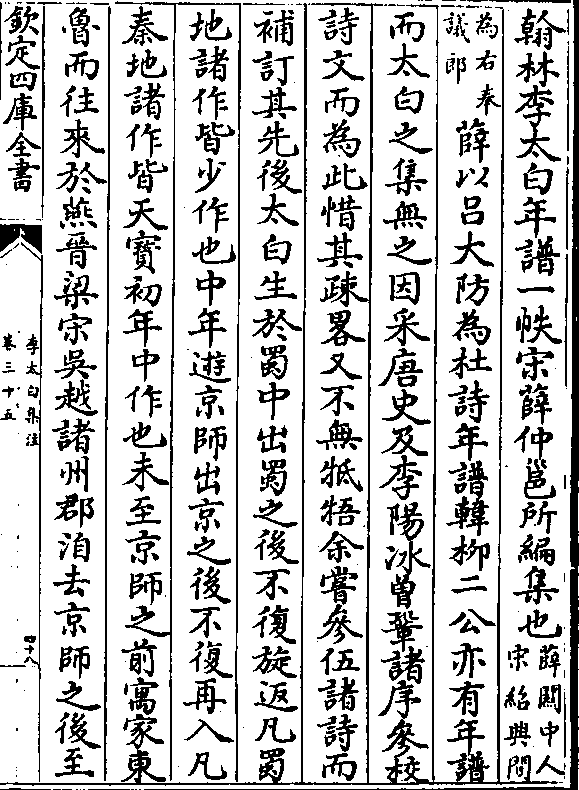 翰林李太白年譜一帙宋薛仲邕所編集也薛關中人宋紹興間
為右奉議郎薛以呂大防為杜詩年譜韓柳二公亦有年譜
而太白之集無之因采唐史及李陽冰曾鞏諸序參校
詩文而為此惜其疎畧又不無牴牾余嘗參伍諸詩而
補訂其先後太白生於蜀中出蜀之後不復旋返凡蜀
地諸作皆少作也中年遊京師出京之後不復再入凡
秦地諸作皆天寶初年中作也未至京師之前寓家東
魯而往來於燕晉梁宋吳越諸州郡洎去京師之後至
欽定四庫全書
李太白集注
卷三十五
四十八